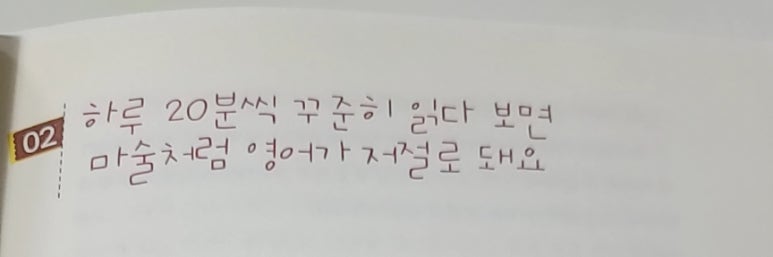 02
하루 20분씩 꾸준히 읽다 보면
마술처럼 영어가 저절로 돼요